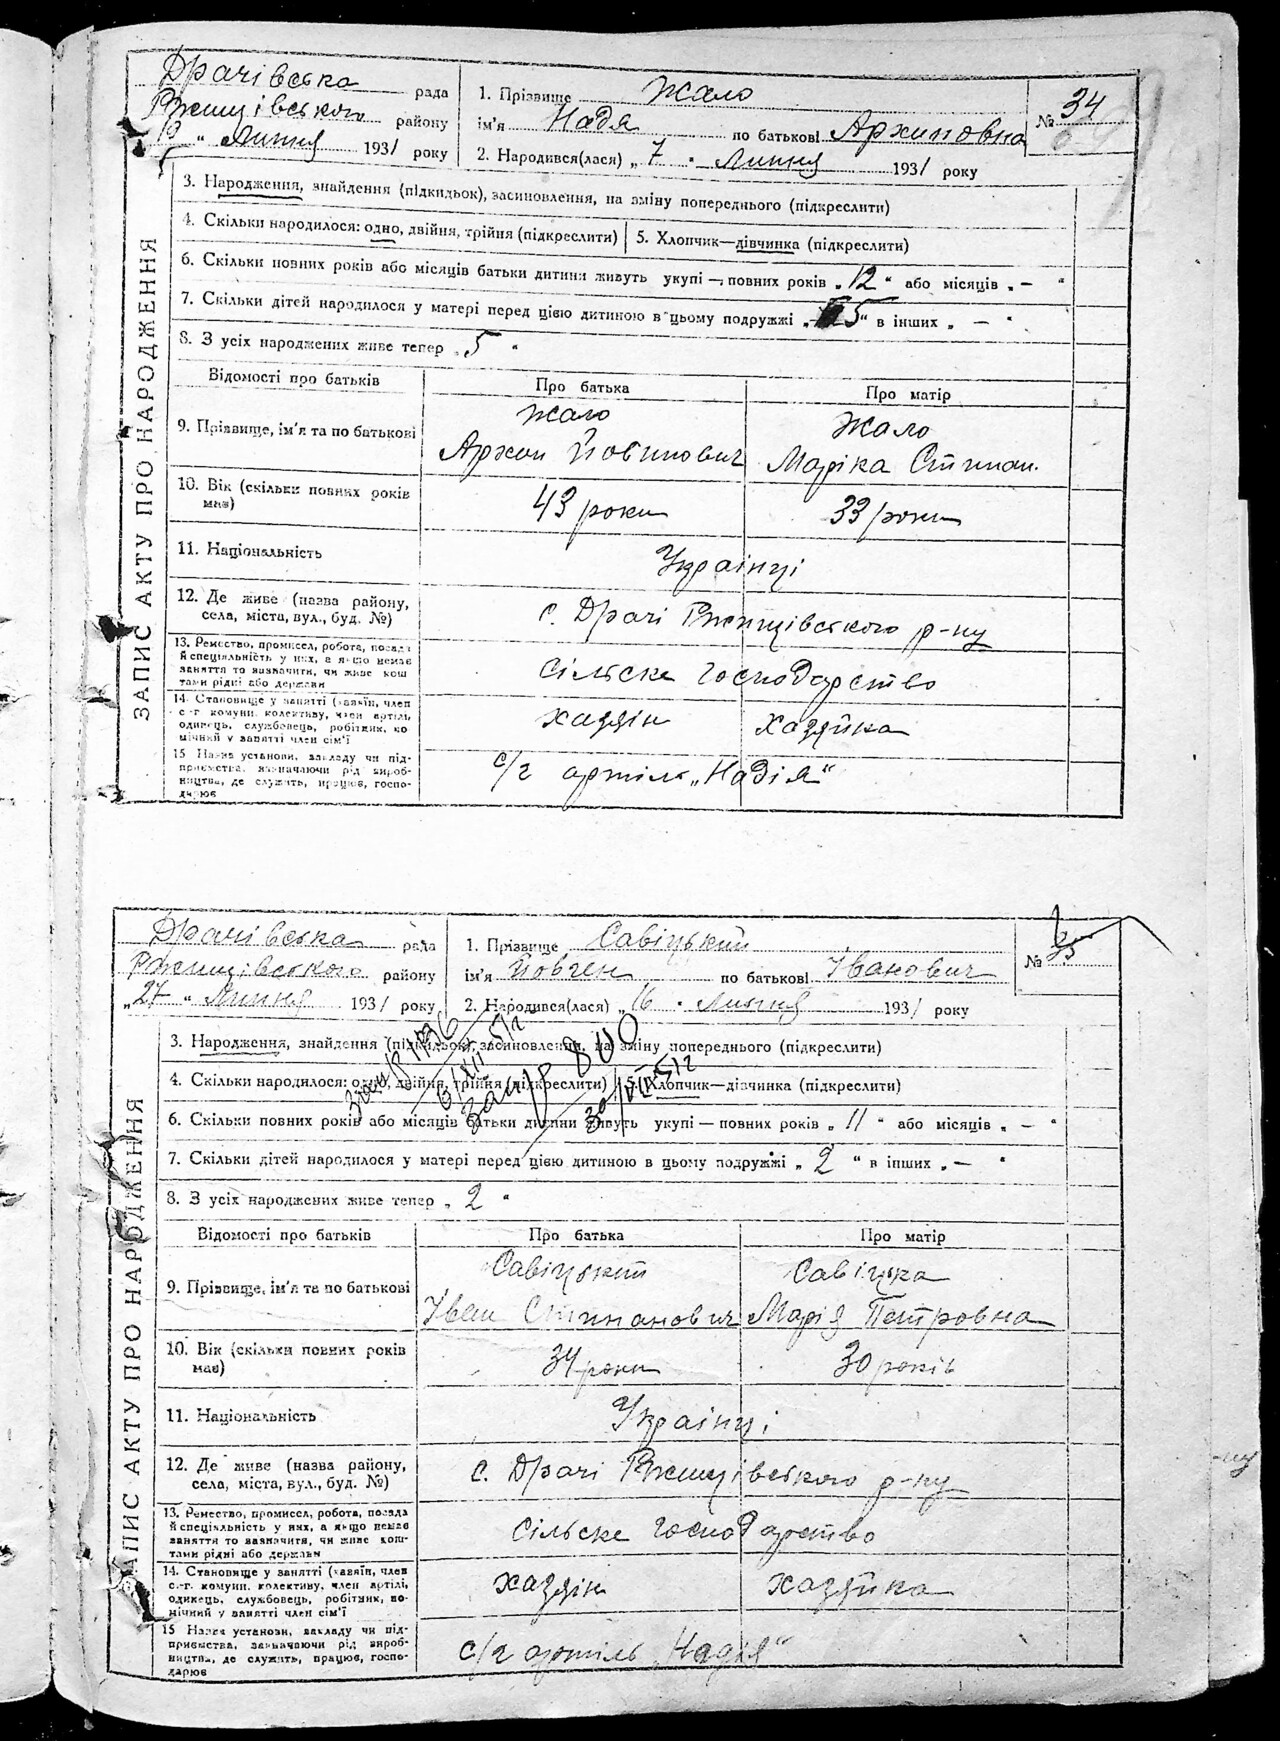 Драчівська рада
Ржищівського району
19 " Липня 1931 року
1. Прізвище Жало
ім'я Надя по батькові Архиповна
2. Народився(лася) „ 7 " Липня 1931 року
№ 34
ЗАПИС АКТУ ПРО НАРОДЖЕННЯ
3. Народження, знайдення (підкидьок), засиновлення, на зміну попереднього (підкреслити)
4. Скільки народилося: одно, двійня, трійня (підкреслити) 5. Хлопчик—дівчинка (підкреслити)
6. Скільки повних років або місяців батьки дитини живуть укупі — повних років „ 12 " або місяців „ — "
7. Скільки дітей народилося у матері перед цією дитиною в цьому подружжі „ 5 " в інших „ — "
8. З усіх народжених живе тепер „ 5 "
Відомості про батьків Про батька Про матір
9. Прізвище, ім'я та по батькові
Жало Жало
Архип Йовпнович Маріка Стипан.
10. Вік (скільки повних років
має)
43 роки 33 роки
11. Національність Українці
12. Де живе (назва району,
села, міста, вул., буд. №)
с. Драчі Ржищівського р-ну
13. Ремество, промисел, робота, посада
й спеціяльність у них, а якщо немає
заняття то визначити, чи живе кош
тами рідні або держави
Сільске господарство
14. Становище у занятті (хазяїн, член
с.-г. комуни, колективу, член артілі
одинець, службовець, робітник, по
мічний у занятті член сім'ї
хазяїн хазяйка
15 Назва установи, закладу чи під-
приємства, зазначаючи рід вироб-
ництва, де служить, працює, госпо-
дарює
с/г артіль „Надія“
Драчівська рада
Ржищівського району
„27 " Липня 1931 року
1. Прізвище Савіцький
ім'я Йовген по батькові Іванович
2. Народився(лася) „ 16 " Липня 1931 року
№ 35
ЗАПИС АКТУ ПРО НАРОДЖЕННЯ
3. Народження, знайдення (підкидьок), засиновлення, на зміну попереднього (підкреслити)
4. Скільки народилося: одно, двійня, трійня (підкреслити) 5. Хлопчик—дівчинка (підкреслити)
6. Скільки повних років або місяців батьки дитини живуть укупі — повних років „ 11 " або місяців „ — "
7. Скільки дітей народилося у матері перед цією дитиною в цьому подружжі „ 2 " в інших „ — "
8. З усіх народжених живе тепер „ 2 "
Відомості про батьків Про батька Про матір
9. Прізвище, ім'я та по батькові
Савіцький Савіцька
Іван Стипанович Марія Петровна
10. Вік (скільки повних років
має)
34 роки 30 років
11. Національність Українці
12. Де живе (назва району,
села, міста, вул., буд. №)
с. Драчі Ржищівського р-ну
13. Ремество, промисел, робота, посада
й спеціяльність у них, а якщо немає
заняття то визначити, чи живе кош-
тами рідні або держави
Сільске господарство
14. Становище у занятті (хазяїн, член
с.-г. комуни, колективу, член артілі,
одинець, службовець, робітник, по-
мічний у занятті член сім'ї
хазяїн хазяйка
15 Назва установи, закладу чи під-
приємства, зазначаючи рід вироб-
ництва, де служить, працює, госпо-
дарює
с/г артіль „Надія“